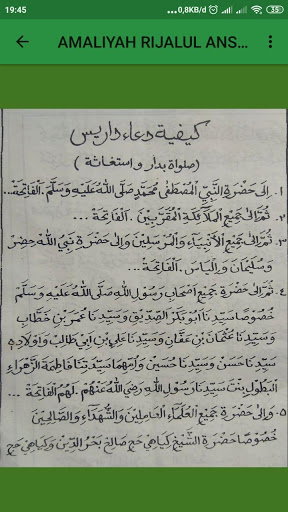 19:45
0,8KB/d
AMALIYAH RIJALUL ANS...
كيفية دعاء داريس
(صلواة بدار و استغاثة)
١. إِلَى حَضْرَةِ النَّبِيِّ الْمُصْطَفَى مُحَمَّدٍ صَلَّى اللهُ عَلَيْهِ وَسَلَّمَ. اَلْفَاتِحَةْ...
٢. ثُمَّ إِلَى جَمِيْعِ الْمَلَائِكَةِ الْمُقَرَّبِيْنَ. اَلْفَاتِحَةْ...
٣. ثُمَّ إِلَى جَمِيْعِ الْأَنْبِيَاءِ وَالْمُرْسَلِيْنَ وَإِلَى حَضْرَةِ نَبِيُّ اللهِ خِضِرْ
وَسُلَيْمَانَ وَإِلْيَاسْ. اَلْفَاتِحَةْ...
٤. ثُمَّ إِلَى حَضْرَةِ جَمِيْعِ أَصْحَابِ رَسُوْلِ اللهِ صَلَّى اللهُ عَلَيْهِ وَسَلَّمَ
خُصُوْصًا سَيِّدِنَا أَبُوْ بَكَرْ الصِّدِّيْقِ وَسَيِّدِنَا عُمَرْ بِنْ خَطَّابِ
وَسَيِّدِنَا عُثْمَانْ بِنْ عَفَّانِ وَسَيِّدِنَا عَلِيْ بِنْ اَبِيْ طَالِبْ وَاَوْلَادِهِ
سَيِّدِنَا حَسَنْ وَسَيِّدِنَا حُسَيْنِ وَاُمِّهِمَا سَيِّدَتِنَا فَاطِمَةَ الزَّهْرَاءِ
الْبَطُوْلِ بِنْتِ سَيِّدِنَا رَسُوْلِ اللهِ رَضِيَ اللهُ عَنْهُمْ. لَهُمُ الْفَاتِحَةْ...
٥. وَإِلَى حَضْرَةِ جَمِيْعِ الْعُلَمَاءِ الْعَامِلِيْنَ وَالشُّهَدَاءِ وَالصَّالِحِيْنَ
خُصُوْصًا حَضْرَةِ الشَّيْخِ كِيَاهِيْ حَجِ صَالِحْ بَحْرُ الدِّيْنِ وَكِيَاهِيْ حَجِ